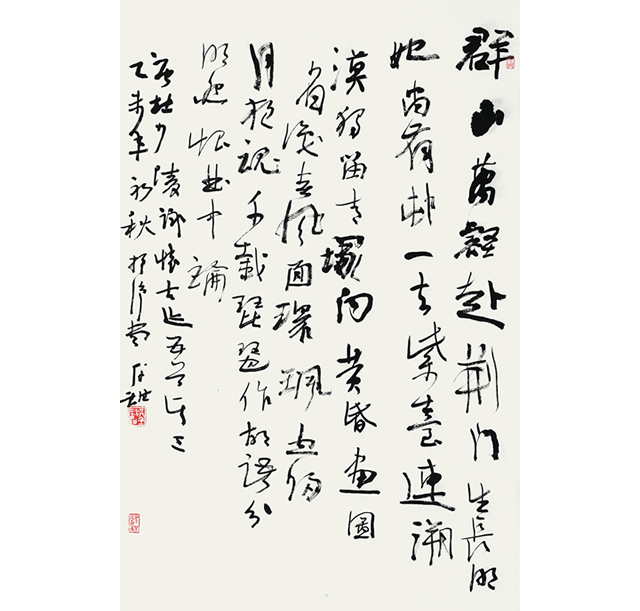 群山萬壑赴荊門生長明
妃尚有邨一去紫臺連朔
漠獨留青塚向黃昏畫圖
省識春風面環珮空歸
月夜魂千載琵琶作胡語分
明怨恨曲中論
唐杜少陵詠懷古迹五首之三
乙未年初秋